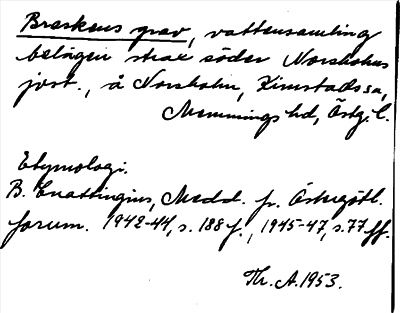 Braskens grav, vattensamling
belägen strax söder Norsholms
jvst., å Norsholm, Kimstads sn,
Memmings hd, Östg. l.
Etymologi.
B. Cnattingius, Medd. fr. Östergötl.
forum. 1942-44, s. 188 f., 1945-47, s. 77 ff.
Th. A. 1953.